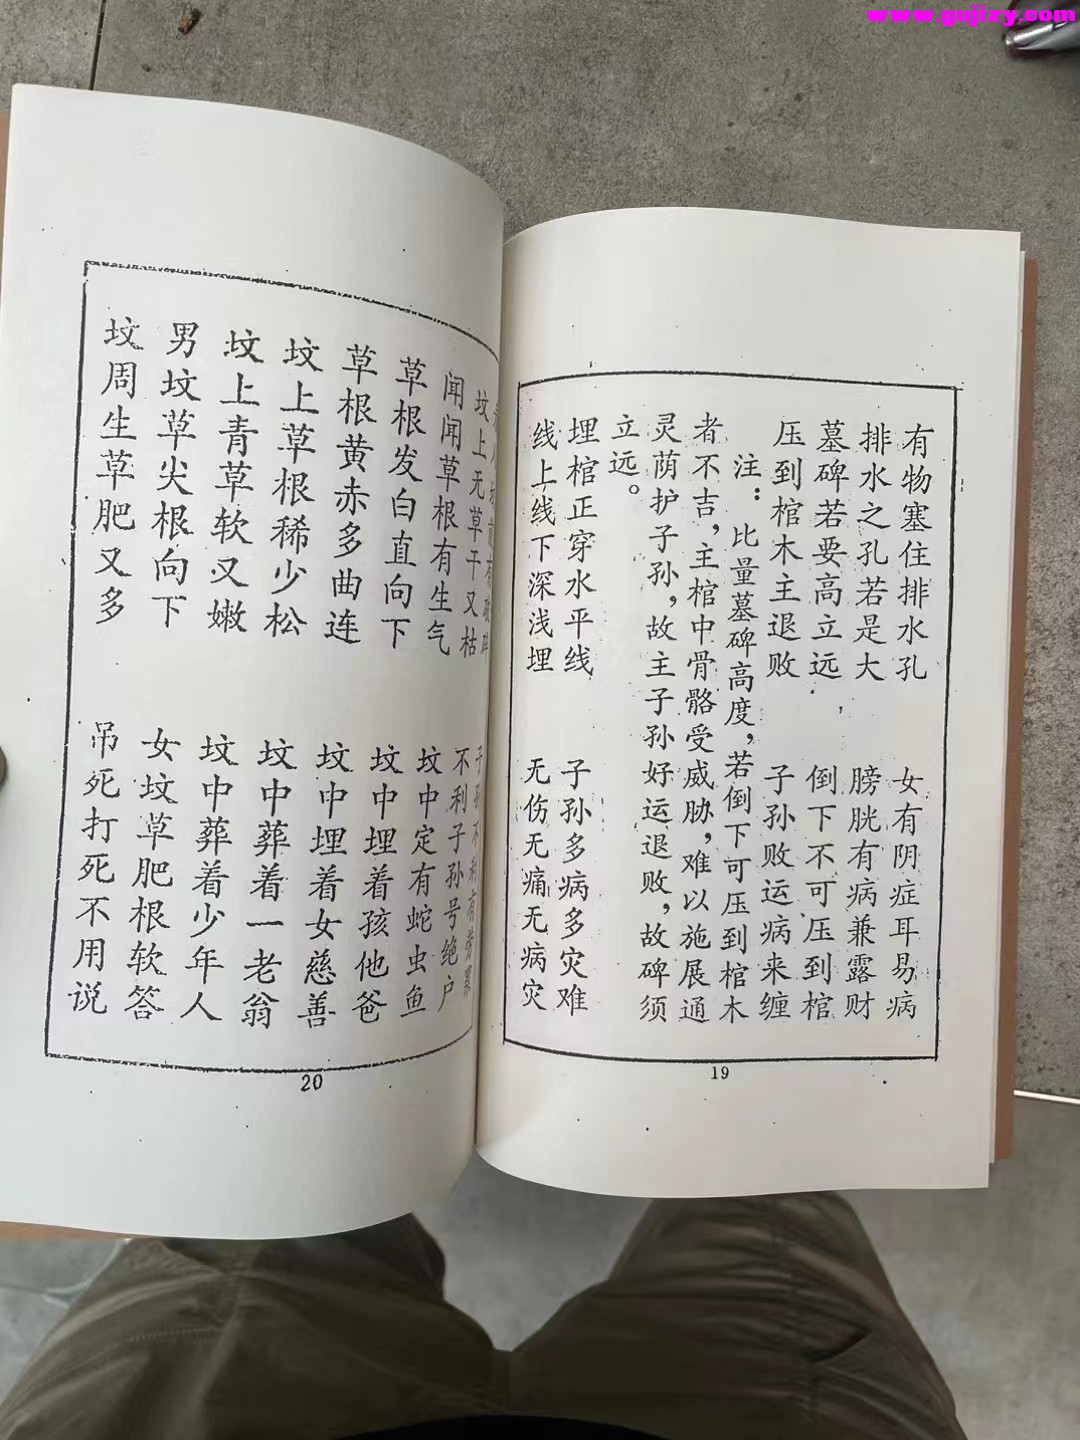 www.gujizy.com
有物塞住排水孔 女有阴症耳易病
排水之孔若是大 膀胱有病兼露财
墓碑若要高立远 倒下不可压到棺
压到棺木主退败 子孙败运病来缠
注：比量墓碑高度，若倒下可压到棺木
者不吉，主棺中骨骼受威胁，难以施展通
灵荫护子孙，故主子孙好运退败，故碑须
立远。
埋棺正穿水平线 子孙多病多灾难
线上线下深浅埋 无伤无痛无病灾
19
子孙不利有劳累
坟上无草干又枯 不利子孙号绝户
闻闻草根有生气 坟中定有蛇虫鱼
草根发白直向下 坟中埋着孩他爸
草根黄赤多曲连 坟中埋着女慈善
坟上草根稀少松 坟中葬着一老翁
坟上青草软又嫩 坟中葬着少年人
男坟草尖根向下 女坟草肥根软答
坟周生草肥又多 吊死打死不用说
20